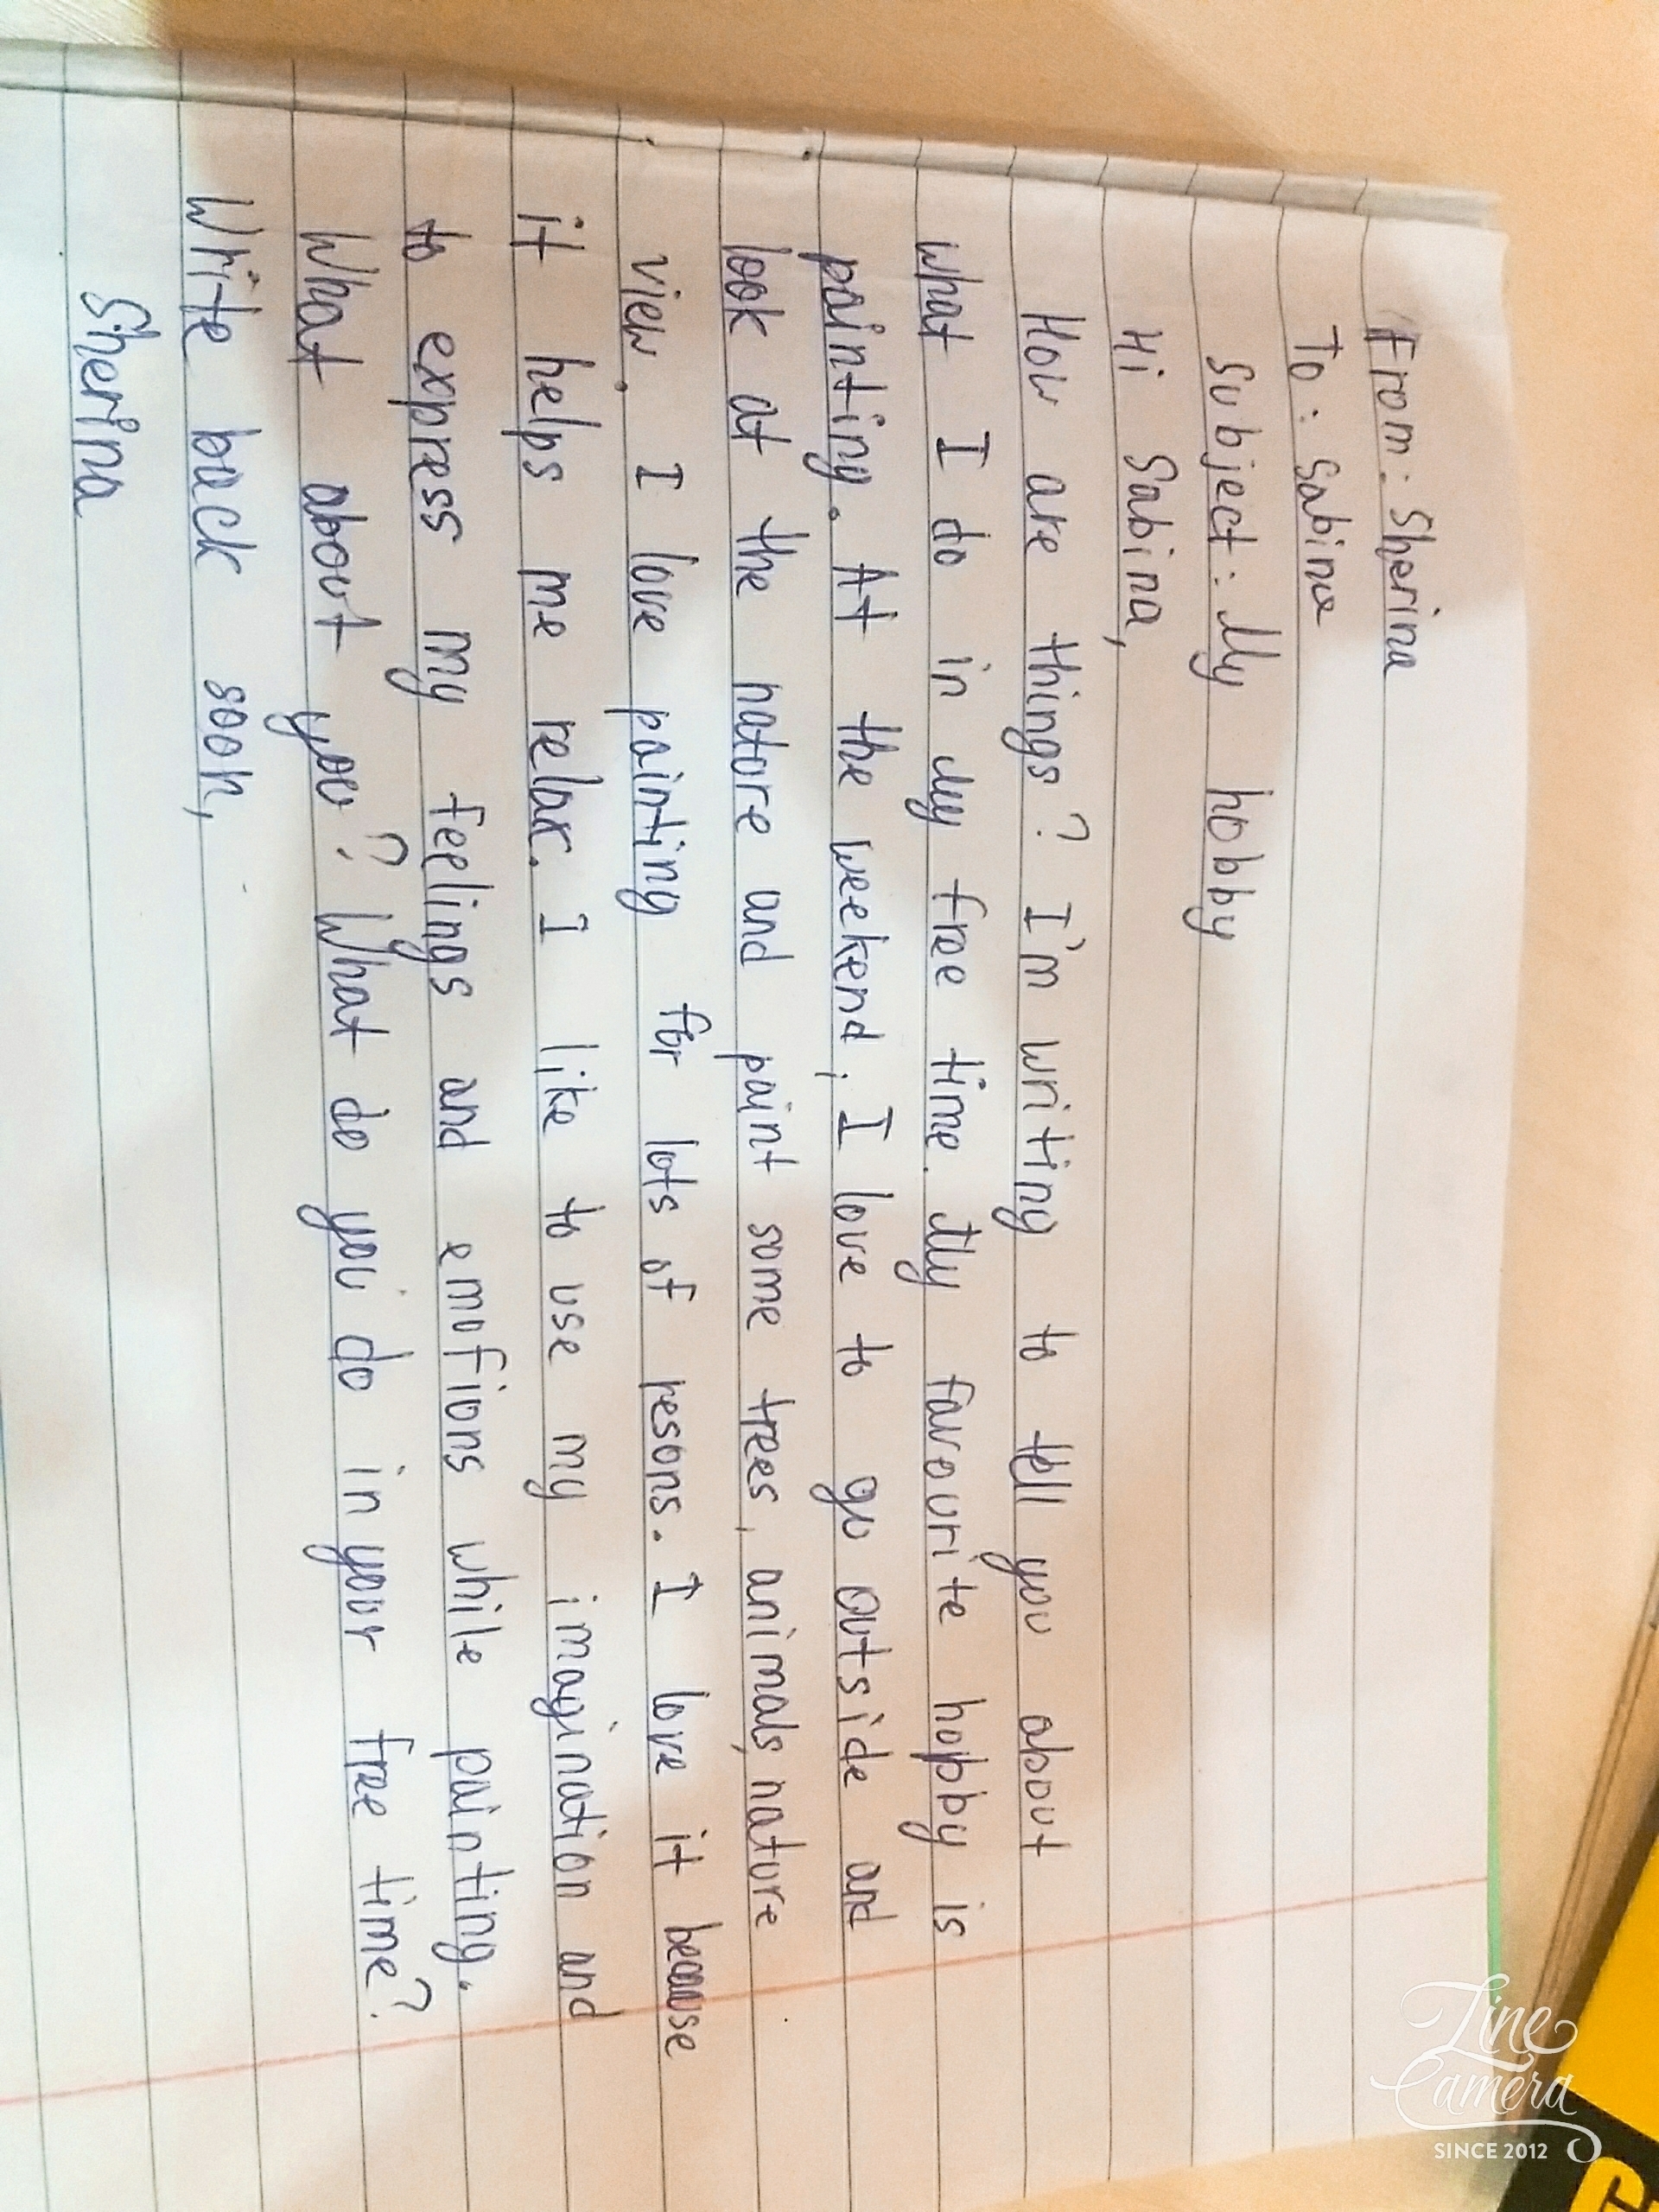 From: Sherina
To: Sabina
Subject: My hobby
Hi Sabina,
How are things? I'm writing to tell you about
what I do in my free time. My favourite hobby is
painting. At the weekend, I love to go outside and
look at the nature and paint some trees, animals, nature
view. I love painting for lots of resons. I love it because
it helps me relax. I like to use my imagination and
to express my feelings and emotions while painting.
What about you? What do you do in your free time?
Write back soon,
Sherina
Line
Camera
SINCE 2012